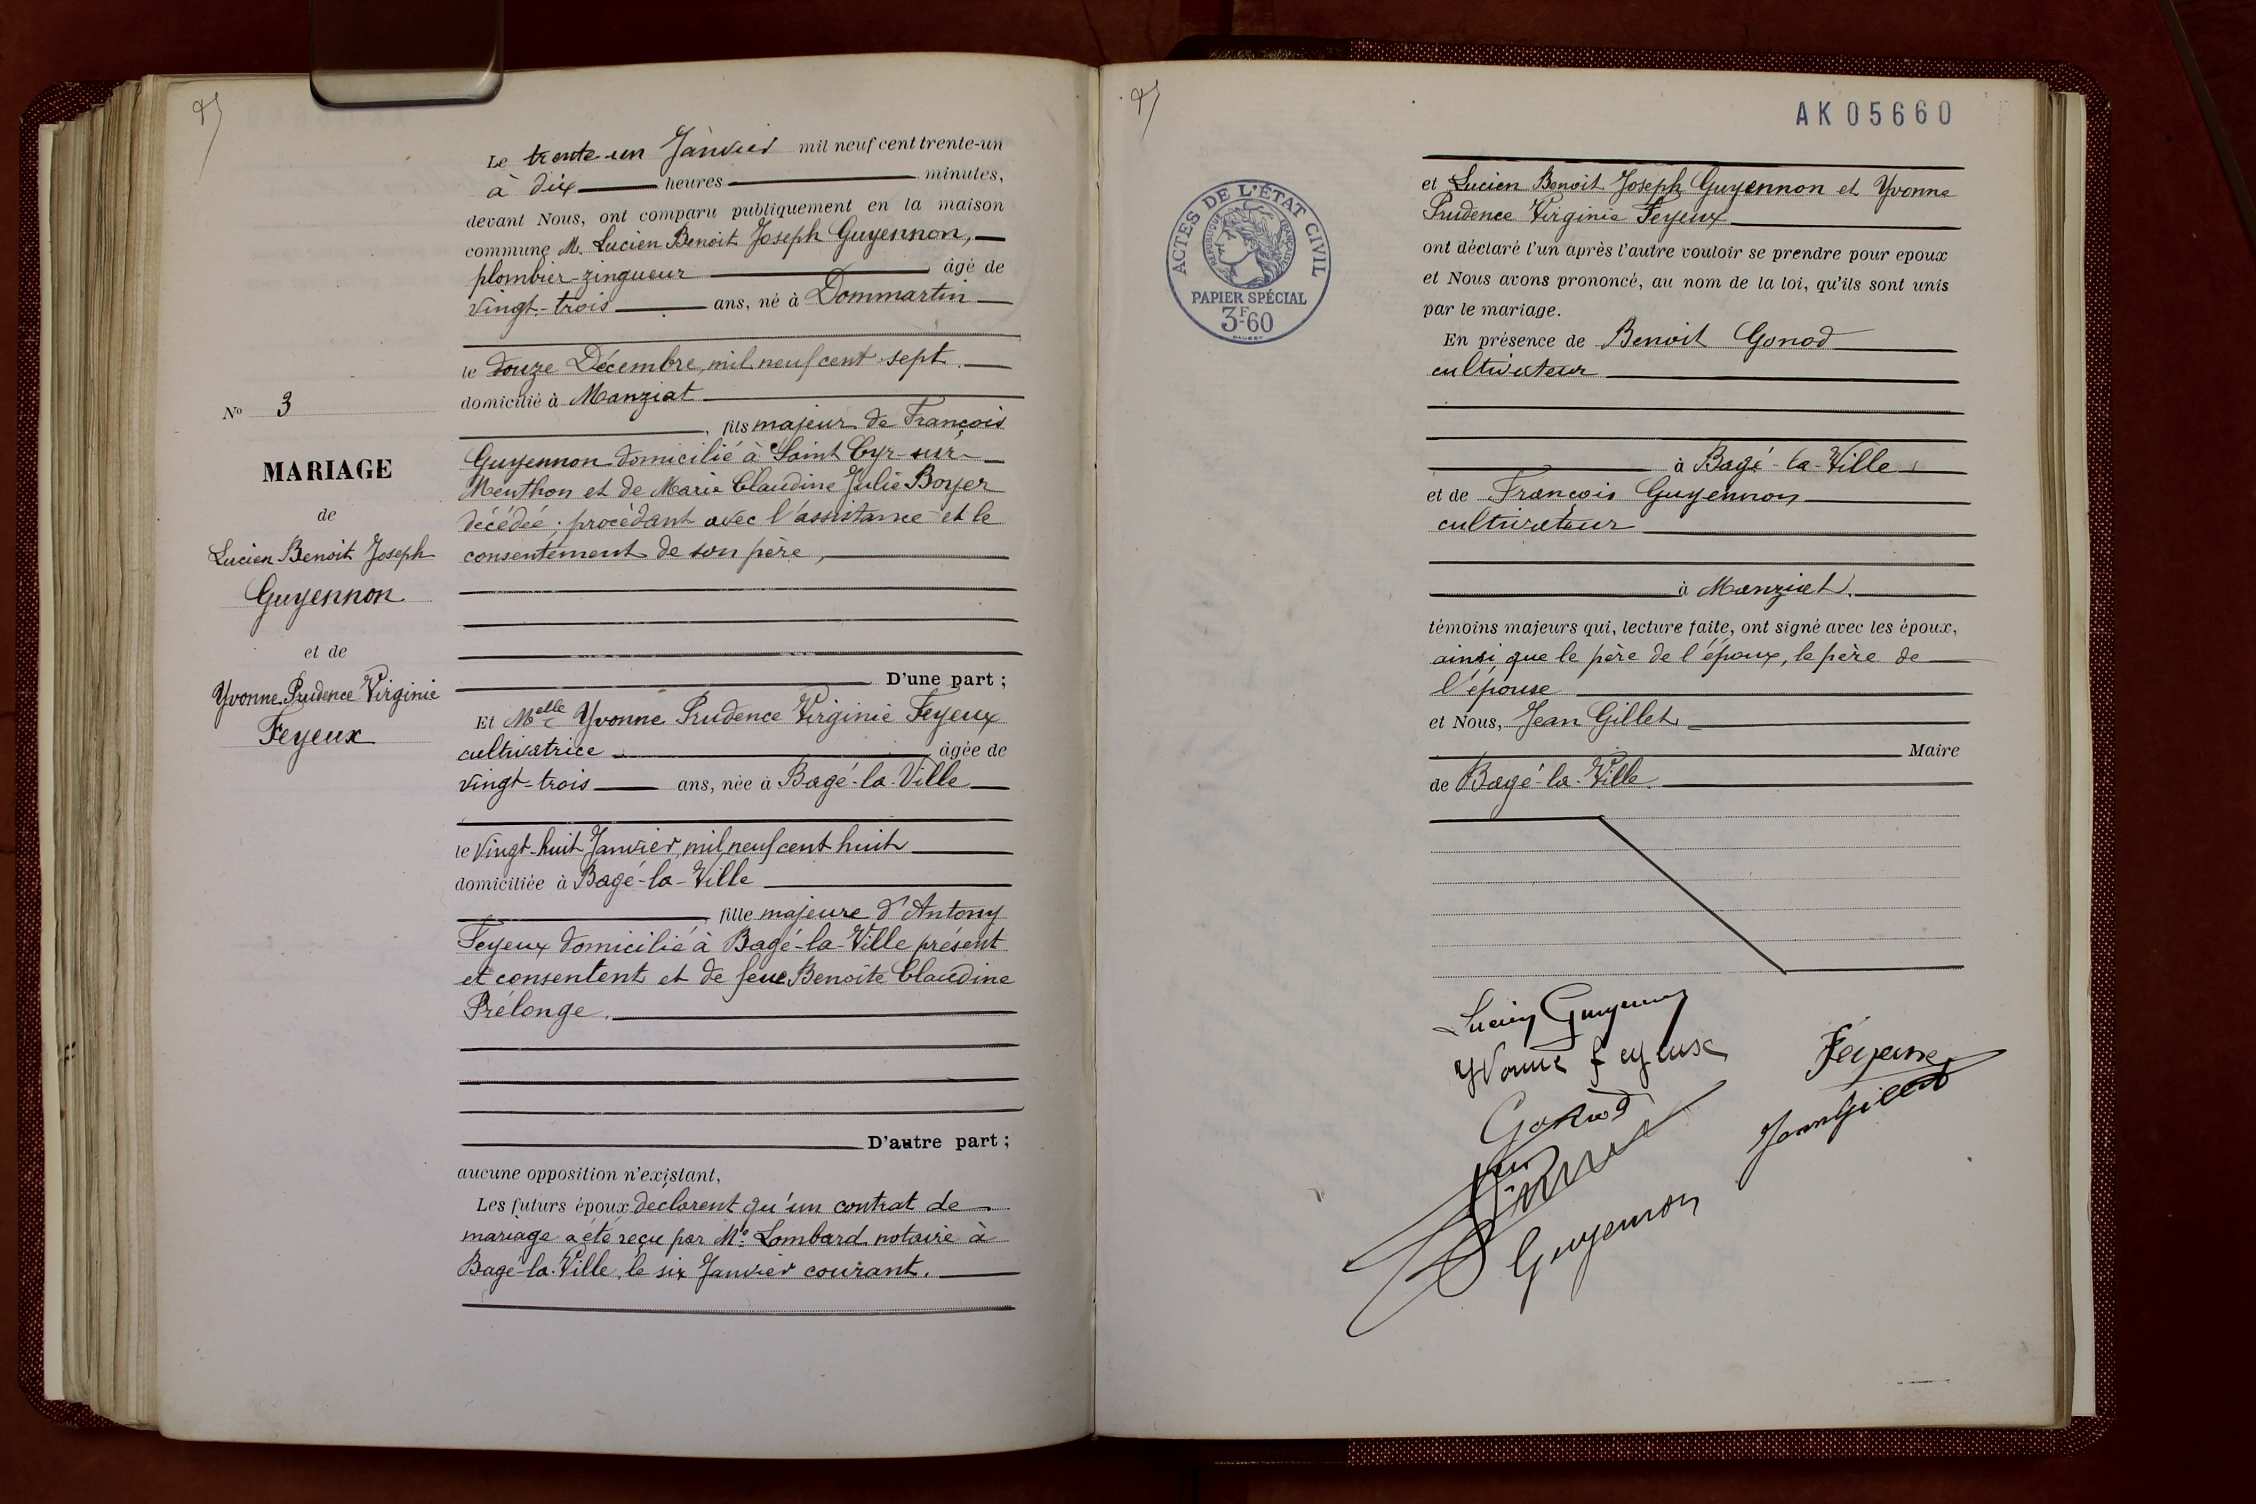 Le trente-un Janvier mil neuf cent trente-un
à dix heures minutes,
devant Nous, ont comparu publiquement en la maison
commune M. Lucien Benoit Joseph Guyennon,
plombier-zingueur âgé de
vingt-trois ans, né à Dommartin
le douze Décembre, mil neuf cent sept.
domicilié à Manziat
, fils majeur de François
Guyennon domicilié à Saint Cyr-sur-
Menthon et de Marie Claudine Julie Boyer
décédée ; procédant avec l'assistance et le
consentement de son père,
D'une part ;
Et Melle Yvonne Prudence Virginie Feyeux
cultivatrice âgée de
vingt-trois ans, née à Bagé-la-Ville
le vingt-huit Janvier, mil neuf cent huit
domiciliée à Bagé-la-Ville
, fille majeure d'Antony
Feyeux domicilié à Bagé-la-Ville présent
et consentent et de feue Benoîte Claudine
Prélonge.
D'autre part ;
aucune opposition n'existant,
Les futurs époux déclarent qu'un contrat de
mariage a été reçu par Me Lombard notaire à
Bagé-la-Ville, le six Janvier courant.
No 3
MARIAGE
de
Lucien Benoit Joseph
Guyennon
et de
Yvonne Prudence Virginie
Feyeux
AK05660
ACTES DE L'ÉTAT CIVIL
RÉPUBLIQUE FRANÇAISE
PAPIER SPÉCIAL
3F60
et Lucien Benoit Joseph Guyennon et Yvonne
Prudence Virginie Feyeux
ont déclaré l'un après l'autre vouloir se prendre pour epoux
et Nous avons prononcé, au nom de la loi, qu'ils sont unis
par le mariage.
En présence de Benoit Gonod
cultivateur
à Bagé-la-Ville
et de François Guyennon
cultivateur
à Manziat.
témoins majeurs qui, lecture faite, ont signé avec les époux,
ainsi que le père de l'époux, le père de
l'épouse
et Nous, Jean Gillet
Maire
de Bagé-la-Ville.
Lucien Guyennon
Yvonne feyeux
Feyeux
Gonod
Jean Gillet
Guyennon